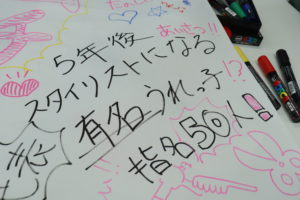 5年後
スタイリストになる
有名うれっ子!?
指名50人!!